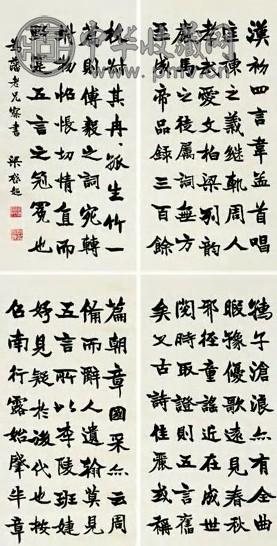 中华收藏网
漢初四言韋孟首唱
匡諫之義繼軌周人
孝武愛文柏梁列韻
嚴馬之徒屬詞無方
至成帝品錄三百餘
篇朝章國采亦云周
備而辭人遺翰莫見
五言所以李陵班婕
妤見疑於後代也按
召南行露始肇半章
孺子滄浪亦有全曲
暇豫優歌遠見春秋
邪徑童謠近在成世
閱時取證則五言舊
矣又古詩佳麗或稱
枚叔其冉冉孤生竹一
則傅毅之詞宛轉
附物怊悵切情直而
野實五言之冠冕也
蔭老兄察書 梁啟超